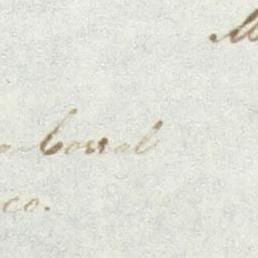 M
Corral
co.